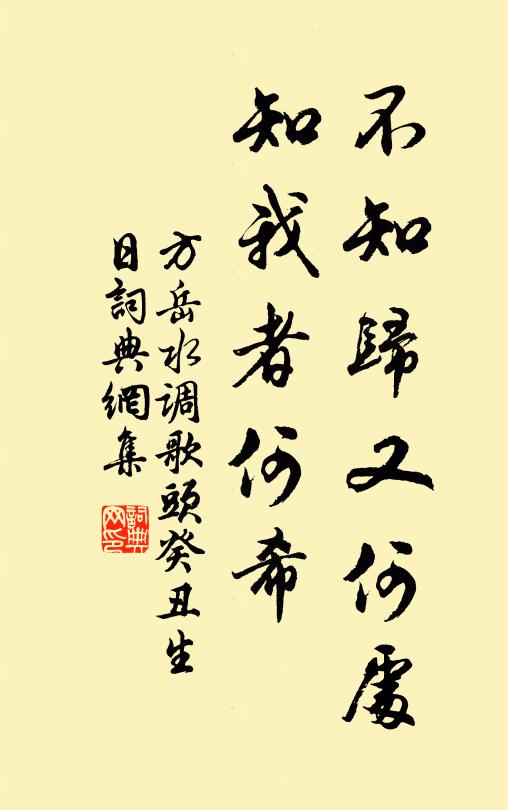 不知歸又何處
知我者何希
方岳水调歌頭癸丑生
日詞典網集
詞典网印